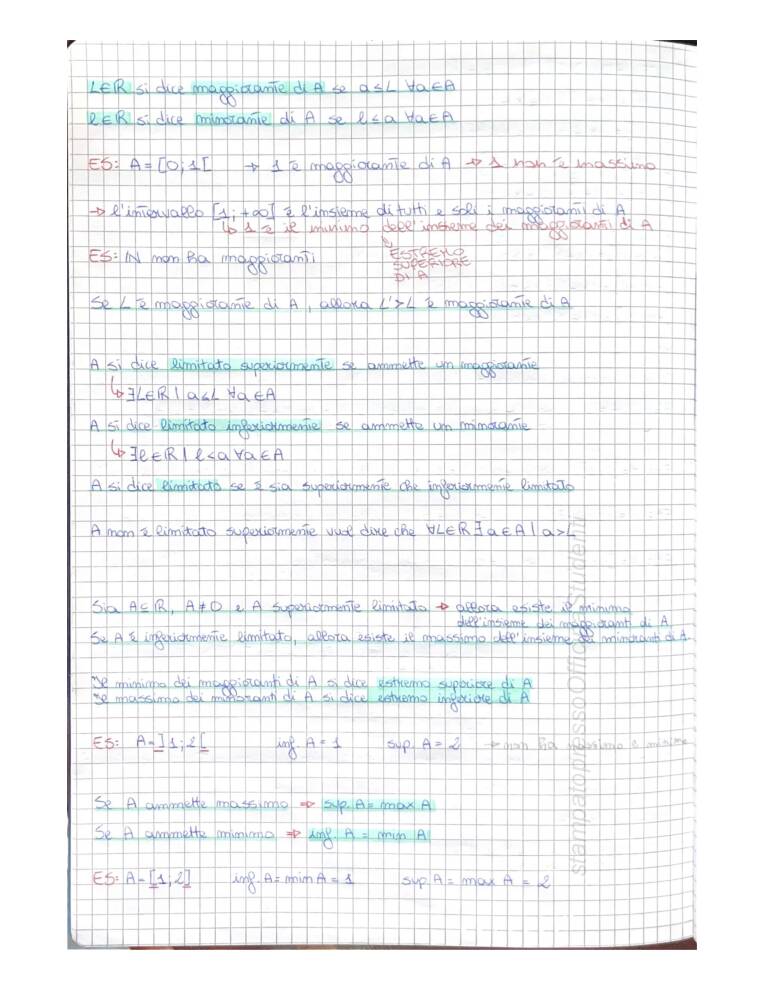 L∈ℝ si dice maggiorante di A se a≤L ∀a∈A
ℓ∈ℝ si dice minorante di A se ℓ≤a ∀a∈A
ES: A=[0;1[ → 1 è maggiorante di A → 1 non è massimo
→ l'intervallo [1;+∞] è l'insieme di tutti e soli i maggioranti di A
↳ 1 è il minimo dell'insieme dei maggioranti di A
ES: ℕ non ha maggioranti
ESTREMO
SUPERIORE
DI A
Se L è maggiorante di A, allora L'>L è maggiorante di A
A si dice limitato superiormente se ammette un maggiorante
↳ ∃L∈ℝ | a≤L ∀a∈A
A si dice limitato inferiormente se ammette un minorante
↳ ∃ℓ∈ℝ | ℓ<a ∀a∈A
A si dice limitato se è sia superiormente che inferiormente limitato
A non è limitato superiormente vuol dire che ∀L∈ℝ ∃a∈A | a>L
Sia A⊆ℝ, A≠0 e A superiormente limitato → allora esiste il minimo
dell'insieme dei maggioranti di A
Se A è inferiormente limitato, allora esiste il massimo dell'insieme dei minoranti di A.
Il minimo dei maggioranti di A si dice estremo superiore di A
Il massimo dei minoranti di A si dice estremo inferiore di A
ES: A=]1;2[ inf. A = 1 sup. A = 2 → non ha massimo e minimo
Se A ammette massimo ⇒ sup. A = max A
Se A ammette minimo ⇒ inf. A = min A
ES: A=[1;2] inf. A = min A = 1 sup. A = max A = 2
stampatopressoOfficinaStudenti